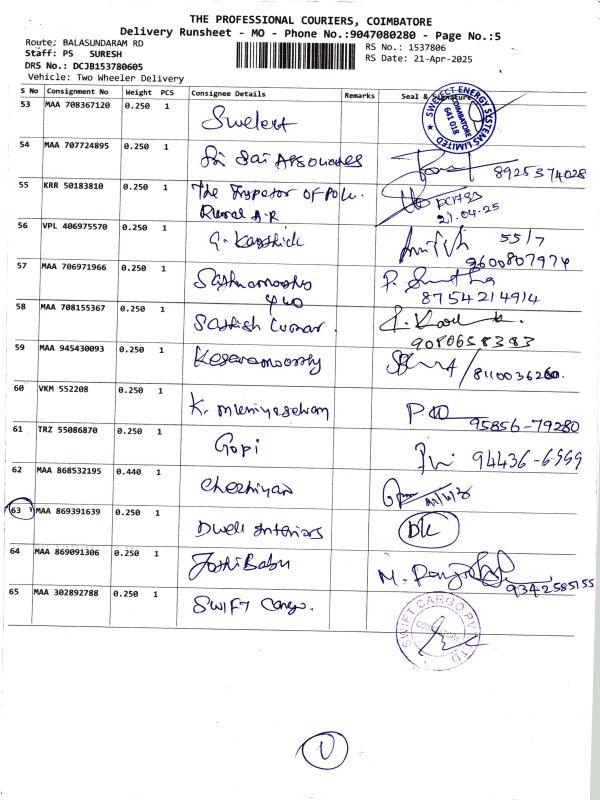 THE PROFESSIONAL COURIERS, COIMBATORE
Delivery Runsheet - MO - Phone No.:9047080280 - Page No.:5
Route: BALASUNDARAM RD
RS No.: 1537806
Staff: PS SURESH
RS Date: 21-Apr-2025
DRS No.: DCJB153780605
Vehicle: Two Wheeler Delivery
S No Consignment No Weight PCS Consignee Details Remarks Seal & Signature
53 MAA 708367120 0.250 1 Swelect
SWELECT ENERGY SYSTEMS LIMITED
COIMBATORE
641 018
54 MAA 707724895 0.250 1 Sri Sai Associates 8925374028
55 KRR 50183810 0.250 1 The Inspector of Police.
Rural A.R 21.04.25
56 VPL 406975570 0.250 1 G. Karthick 55/7
9600807974
57 MAA 706971966 0.250 1 Sathiamoorthy
8754214914
58 MAA 708155367 0.250 1 Sathish Cumar.
9080658383
59 MAA 945430093 0.250 1 Kesavamoorthy 8110036260.
60 VKM 552208 0.250 1 K. muniyaselvam
95856-79280
61 TRZ 55086870 0.250 1 Gopi
62 MAA 868532195 0.440 1 Chezhiyan
63 MAA 869391639 0.250 1 Dwell Interiors
64 MAA 869091306 0.250 1 Jothi Babu M.
9342585155
65 MAA 302892788 0.250 1 SWIFT Cargo.
SWIFT CARGO PVT LTD